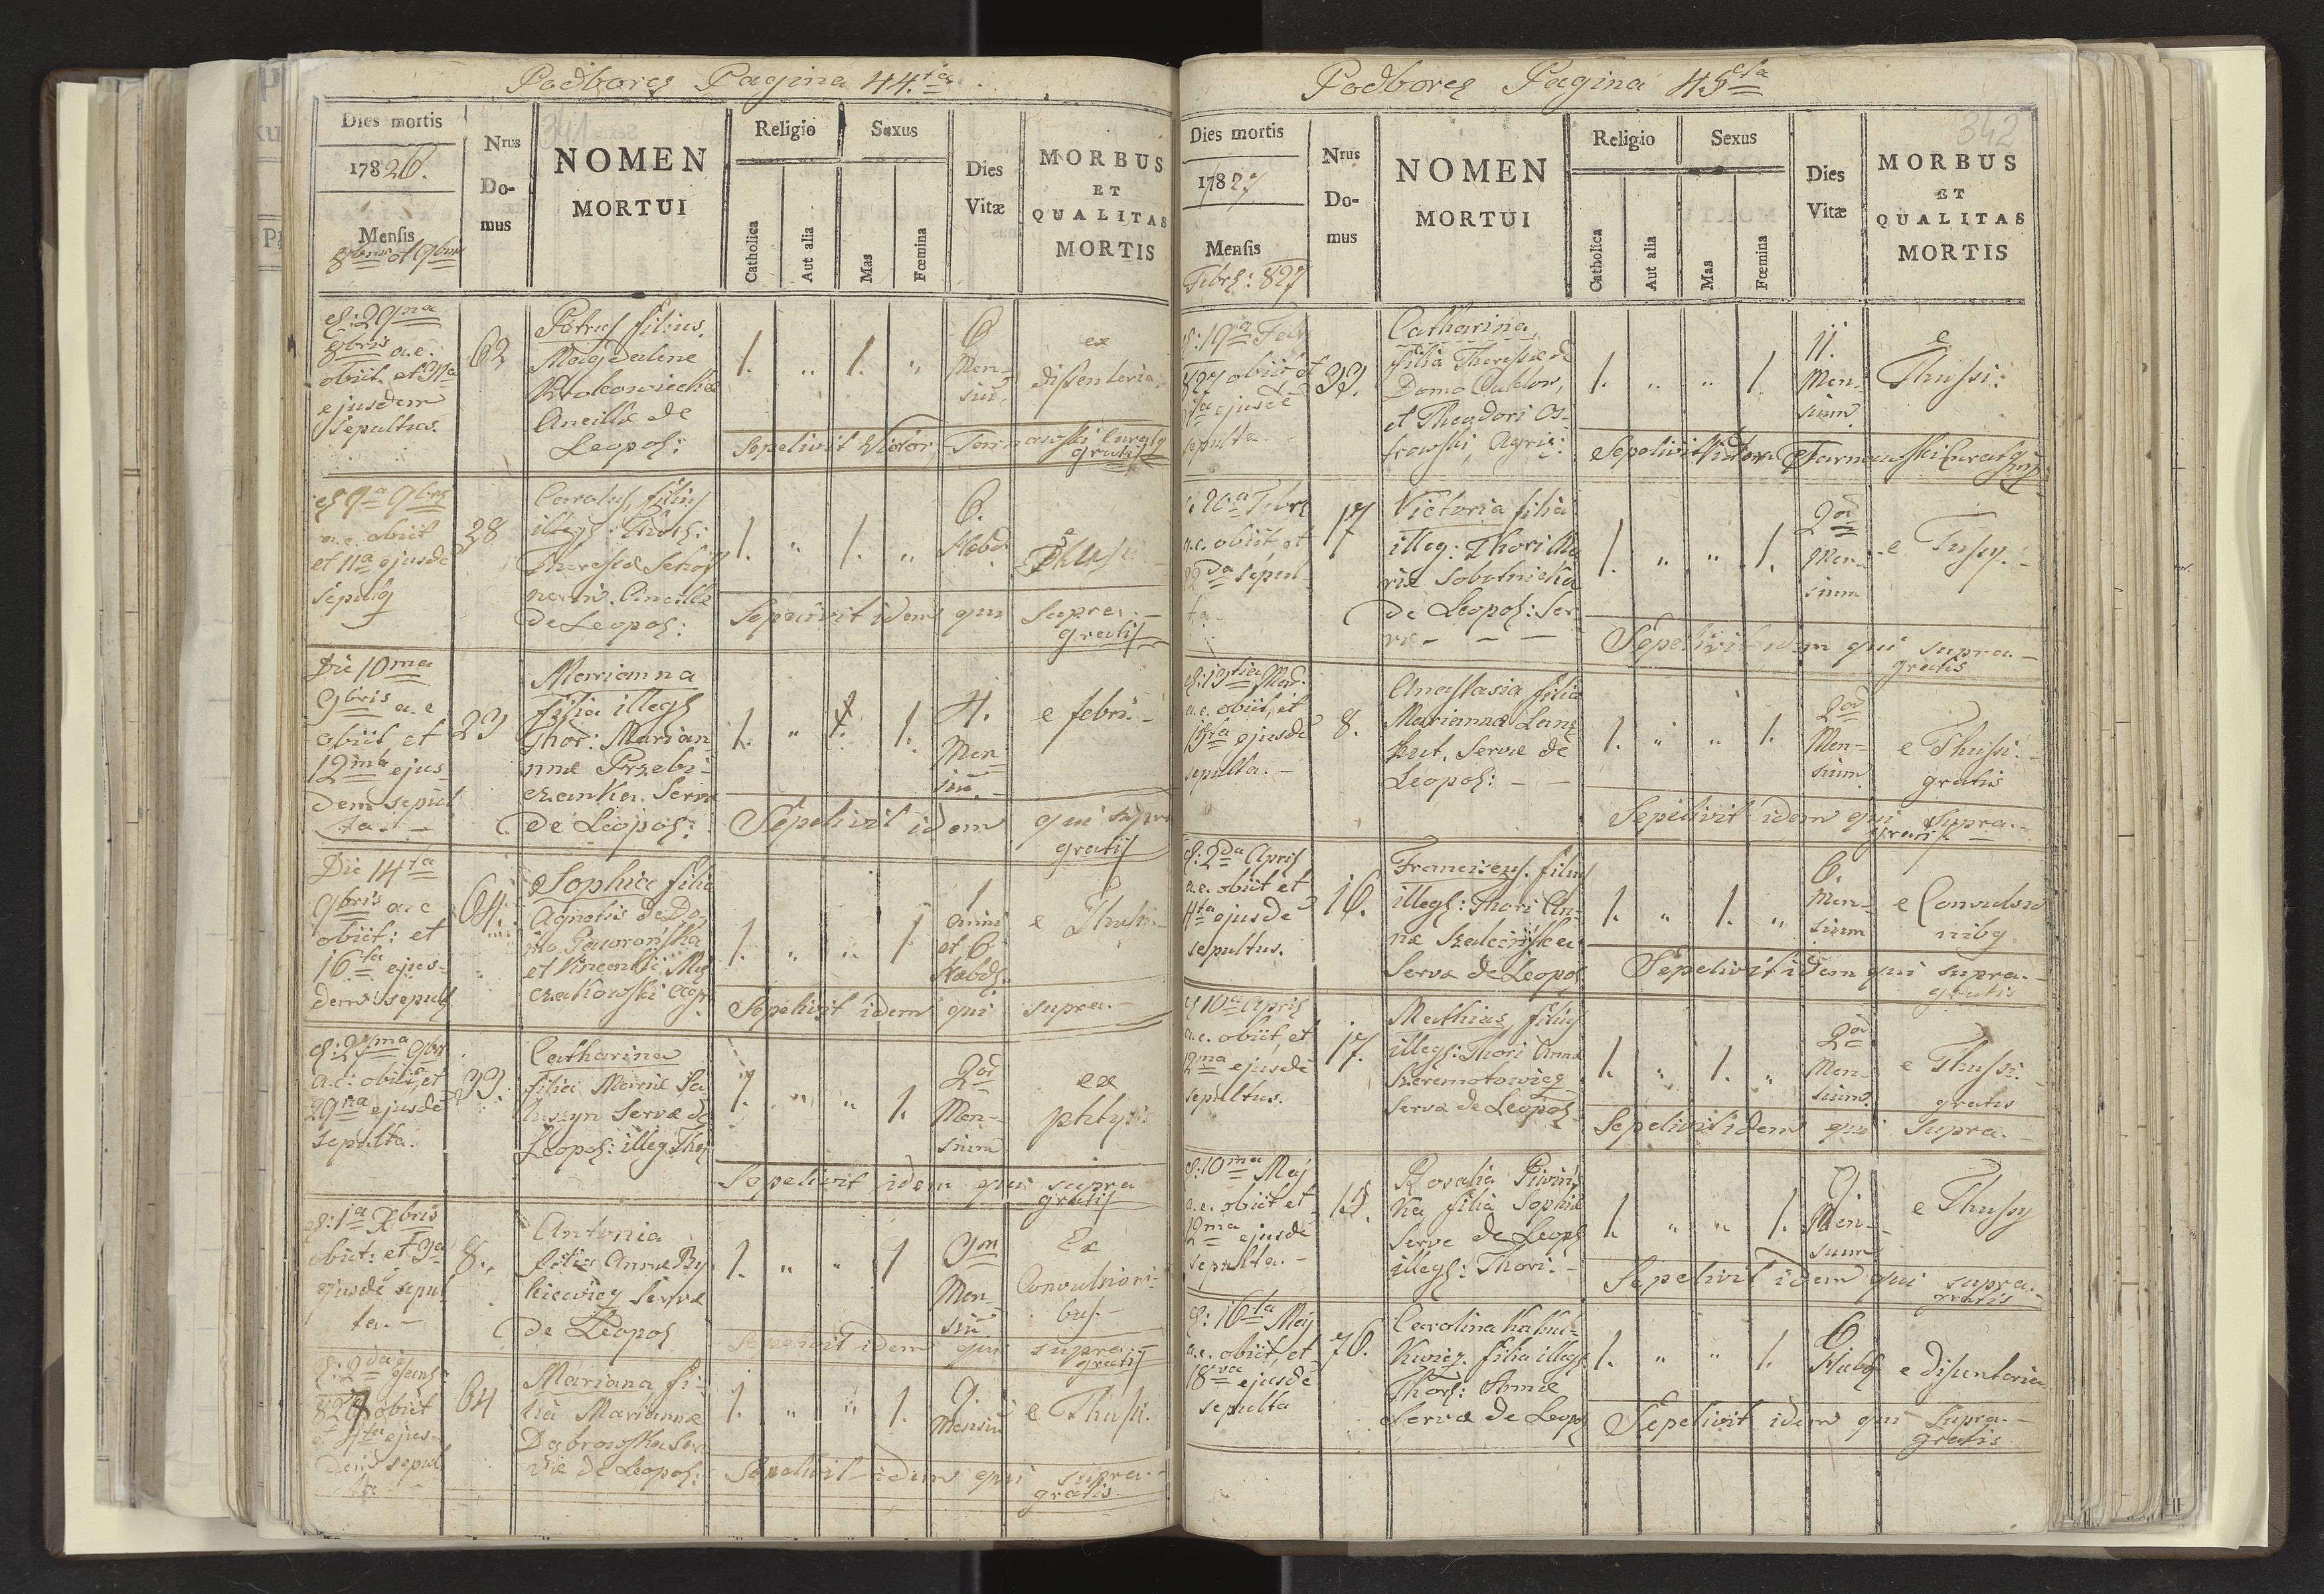 Podborcz Pagina 44.ta
Dies mortis
17826.
Mensis
8bris et 9bris
Nrus Do-mus
NOMEN MORTUI
Religio
Catholica
Aut alia
Sexus
Mas
Fœmina
Dies Vitæ
MORBUS ET QUALITAS MORTIS
d: 29na
8bris a.c.
obiit et 31a
ejusdem
sepultus.
62
Petrus filius
Magdalene
Ancilla de
Leopol:
1. „ 1. „
6
Men-
siū
ex
dissenteria
Sepelivit Victor Tarnawski Curatus
gratis
d 9a 9bris
a.c. obiit
et 11a ejusdē
sepultq
28
Carolus filius
illegs: Thoris:
Theresiæ
Ancilla
de Leopol:
1. „ 1. „
6.
Hebd.
e
Sepelivit idem qui supra. –
gratis
Die 10ma
9bris a.c
obiit et
12ma ejus-
dem sepul
ta. –
23
Marianna
filia illegs
Thor: Marian-
næ Przebi-
czanka. Serva
de Leopol:
1. „ 1.
4.
Men-
siū. –
e febri. –
Sepelivit idem qui supra
gratis
Die 14ta
9bris a.c
obiit: et
16ta ejus-
dem sepult
64.
Sophia filia
Agnetis de Do-
mo Gaworońska
et Vincentii
1. „ „ 1
1
anni
et 6
Hebd.
e Thusi. –
Sepelivit idem qui supra. –
d: 27ma 9bris
a.c: obiit, et
29na ejusdē
sepulta.
33.
Catharina
filia Mariæ
Serva de
Leopol: illeg. Thor
1. „ „ 1.
2or
Men-
sium
ex
phtysi
Sepelivit idem qui supra
gratis
d: 1a Xbris
obiit: et 3a
ejusdē sepul
ta. –
8.
Antonia
filia Annæ
Serva
de Leopol
1. „ „ 1
3m
Men-
siū
Ex
Convulsioni-
bus. –
Sepelivit idem qui supra
gratis
d: 2da Januar
827 obiit
et 4ta ejus-
dem sepul
ta –
64
Mariana fi-
lia Mariannæ
Dąbrowska Ser
væ de Leopol:
1. „ „ 1.
9.
Mensiū
e Thusi.
Sepelivit idem qui supra. –
gratis
Podborcz Pagina 45ta
342
Dies mortis
17827
Mensis
Febrs: 827
Nrus Do-mus
NOMEN MORTUI
Religio
Catholica
Aut alia
Sexus
Mas
Fœmina
Dies Vitæ
MORBUS ET QUALITAS MORTIS
d: 19na Feb
827 obiit et
21a ejusdē
sepulta.
33.
Catharina,
filia Theresiæ de
Domo
et Theodori Os-
trowski, Agric:
1. „ „ 1.
11.
Men-
sium
e
Thussi:
Sepelivit Victor Tarnawski Curatq
d. 20.a Febrs
a.c. obiit et
22da sepul-
ta –
17
Victoria filia
illeg: Thori Ma
riæ Sobotnicka
de Leopol: Ser-
væ – – –
1. „ „ 1.
2or
Men-
sium
e Tussy. –
Sepelivit idem qui supra. –
gratis
d: 13tia Mar.
a.c. obiit, et
15ta ejusdē
sepulta. –
8.
Anastasia filia
Mariannæ
Servæ de
Leopol: – –
1. „ „ 1.
2or
Men-
sium
e Thussi. –
gratis
Sepelivit idem qui supra. –
gratis
d: 2da Apris
a.c. obiit et
4ta ejusdē
sepultus.
16.
Franciscus, filius
illegs: Thori An-
næ
Serva de Leopol
1. „ 1. „
6.
Men-
sium
e Convulsio
nibq
Sepelivit idem qui supra. –
gratis
d 10a Apris
a.c. obiit, et
12ma ejusdē
sepultus.
17.
Mathias, filius
illegs: Thori Annæ
Szeremetowicz
Serva de Leopol
1. „ 1. „
2or
Men-
sium.
e Thussi.
gratis
Sepelivit idem qui supra. –
d: 10ma Maj
a.c. obiit et
12ma ejusdē
sepulta. –
15.
Rosalia Piwiń
ka filia Sophiæ
Serve de Leopl
illegs: Thori. –
1. „ „ 1.
9.
Men-
sium
e Thussy
Sepelivit idem qui supra. –
gratis
d: 16ta Maj
a.c. obiit, et
18va ejusdē
sepulta
76.
Carolina
filia illegs
Thors: Annæ
Serva de Leopol
1. „ „ 1.
6
Hebd
e disenteria
Sepelivit idem qui supra. –
gratis